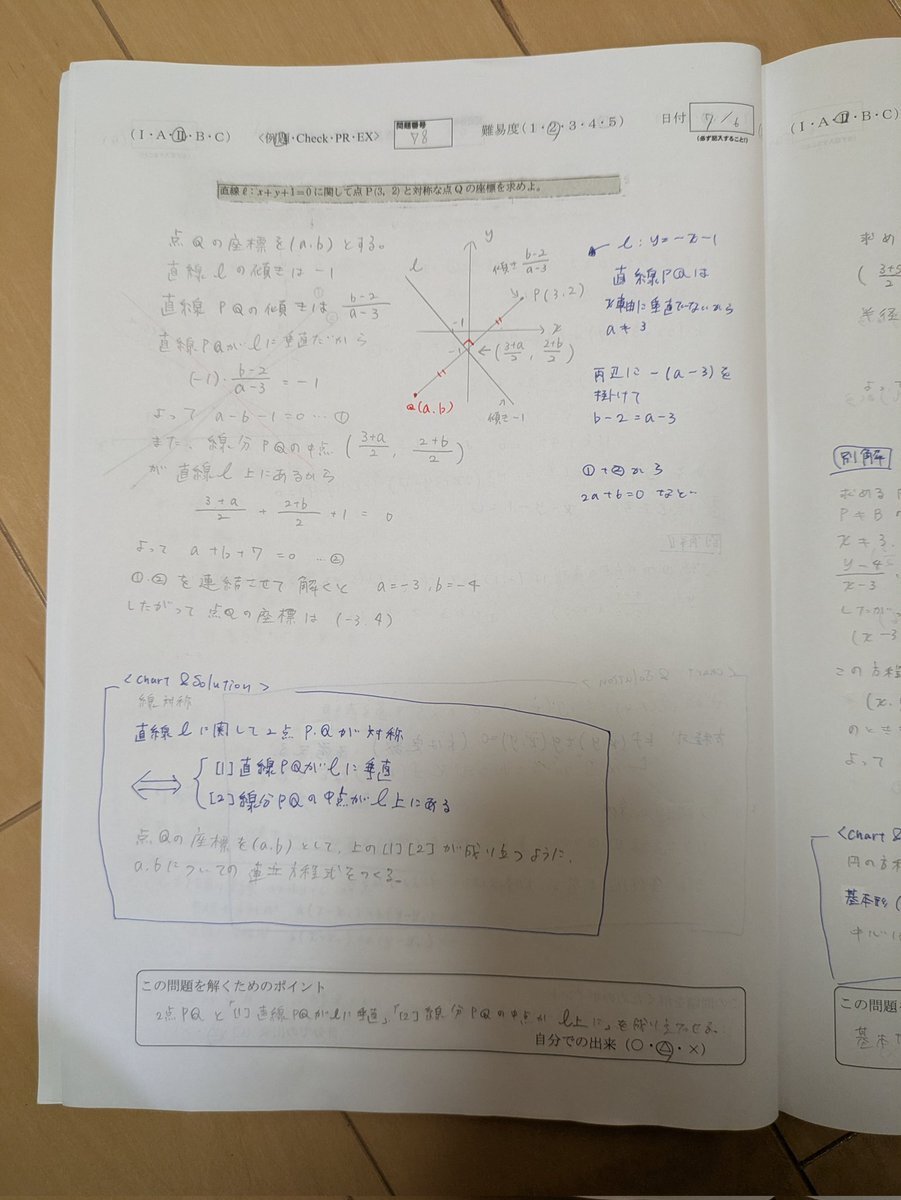 (I・A・Ⅱ・B・C)
<例題・Check・PR・EX>
問題番号
78
難易度(1・2・3・4・5)
日付
7/6
(必ず記入すること!)
(I・A・Ⅱ
直線ℓ:x+y+1=0に関して点P(3, 2)と対称な点Qの座標を求めよ。
点Qの座標を(a.b)とする。
直線lの傾きは-1
直線PQの傾きは b-2/a-3
直線PQがlに垂直だから
(-1)・b-2/a-3=-1
よって a-b-1=0…①
また、線分PQの中点(3+a/2, 2+b/2)
が直線l上にあるから
3+a/2+2+b/2+1=0
よって a+b+7=0…②
①.②を連結させて解くと a=-3,b=-4
したがって点Qの座標は(-3.4)
l
y
x
傾き b-2/a-3
P(3,2)
-1
-1
←(3+a/2, 2+b/2)
Q(a.b)
傾き-1
l:y=-x-1
直線PQは
x軸に垂直でないから
a≠3
両辺に-(a-3)を
掛けて
b-2=a-3
①+②から
2a+6=0 など
<Chart &Solution>
線対称
直線lに関して2点P.Qが対称
⇔
[1]直線PQがlに垂直
[2]線分PQの中点がl上にある
点Qの座標を(a.b)として、上の[1][2]が成り立つように、
a.bについての連立方程式をつくる。
この問題を解くためのポイント
2点PQと「[1]直線PQがlに垂直」「[2]線分PQの中点がl上に」を成り立たせる。
自分での出来(○・△・×)
求め
(3+5/2
半径
よっ
別解
求める
x≠3.
y-4/x-3
したが
(x-3
この方程
(x.
のとき
よって
<Chart &
円の方程
基本形(
中心(
この問題
基本